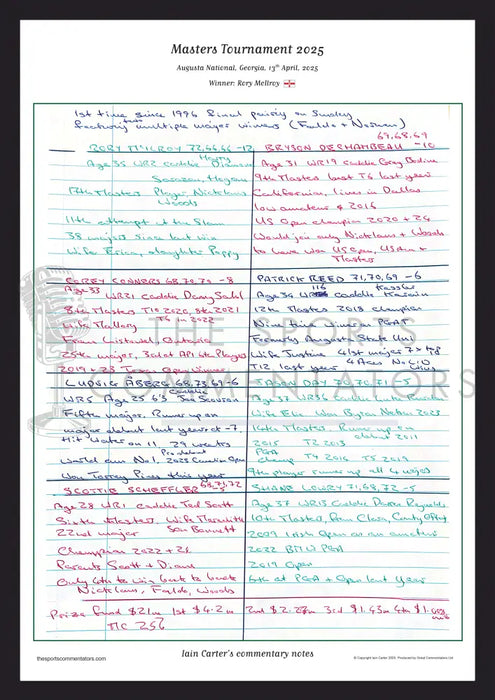 Masters Tournament 2025
Augusta National, Georgia, 13th April, 2025
Winner: Rory McIlroy
1st time since 1996 final pairing on Sunday
featuring two multiple major winners (Faldo + Norman)
RORY McILROY 72,66,66 -12
Age 35 WR2 caddie Harry Diamond
Sarazen, Hogan
17th Masters Player, Nicklaus
Woods
11th attempt at the Slam
38 majors since last win
Wife Erica, daughter Poppy
69,68,69
BRYSON DECHAMBEAU -10
Age 31 WR19 caddie Greg Bodine
9th Masters best T6 last year
Californian, lives in Dallas
low amateur @ 2016
US Open champion 2020 + 24
Would join only Nicklaus + Woods
to have won US Open, US Am +
Masters
COREY CONNERS 68,70,70 -8
Age 33
WR21 caddie Danny Sahl
8th Masters T10 2020, 8th 2021
T6 in 2022
Wife Mallory
From Listowel, Ontario
25th major, 3rd at API 6th Players
2019 + 23 Texas Open winner
PATRICK READ 71,70,69 -6
116 Kessler
Age 34 WR caddie Karain
12th Masters 2018 champion
Nine time winner PGAT
Formerly Augusta State Uni
Wife Justine 41st major 7x top
T12 last year 4 Aces No LIV
wins
LUDVIG ABERG 68,73,69 -6
caddie
WR5 Age 25 6'3 Joe Skovron
Fifth major. Runner up on
major debut last year at -7.
Hit Water on 11 29 weeks
Pro debut
World am No1, 2023 Canadian Open
Won Torrey Pines this year
JASON DAY 70,70,71 -5
Age 37 WR36 caddie Luke
Wife Ellie Won Byron Nelson 2023
14th Masters Runner up on
debut 2011
2015 T2 2013
PGA
champ T4 2016 T5 2019
9th player runner up all 4 majors
SCOTTIE SCHEFFLER 68,71,72 -5
Age 28 WR1 caddie Ted Scott
Sixth Masters, Wife Meredith
22nd major Son Bennett
Champion 2022 + 24
Parents Scott + Diane
Only 4th to win back to back
Nicklaus, Faldo, Woods
SHANE LOWRY 71,68,72 -5
Age 37 WR13 Caddie Darren Reynolds
10th Masters, from Clara, County Offaly
2009 Irish Open as an amateur
2022 BMW PGA
2019 Open
6th at PGA + Open last year
Prize fund $21m 1st $4.2m 2nd $2.27m 3rd $1.43m 4th
TIC 256
THE SPORTS
COMMENTATORS
Iain Carter's commentary notes
thesportscommentators.com
© Copyright Iain Carter 2025. Produced by Global Commentators Ltd